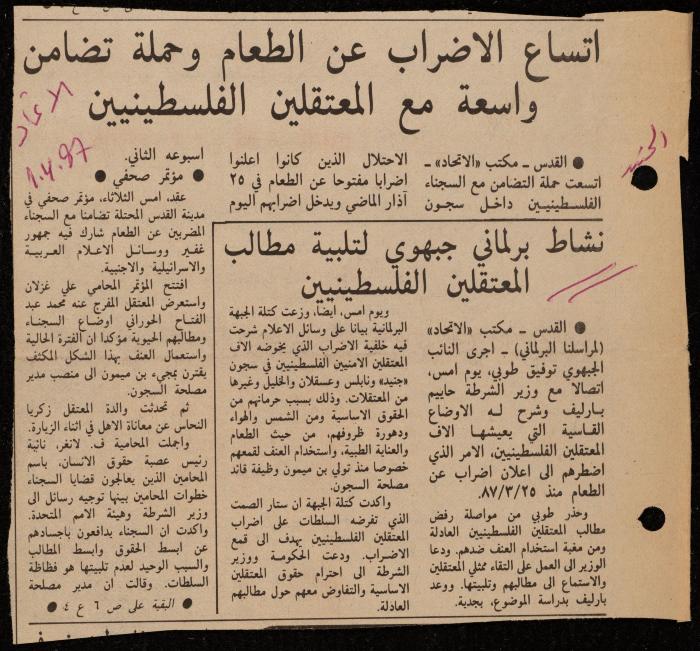 اتساع الاضراب عن الطعام وحملة تضامن
واسعة مع المعتقلين الفلسطينيين
الاتحاد
1.4.87
الجنيد
● القدس ـ مكتب «الاتحاد» ـ
اتسعت حملة التضامن مع السجناء
الفلسطينيين داخل سجون
الاحتلال الذين كانوا اعلنوا
اضرابا مفتوحا عن الطعام في ٢٥
آذار الماضي ويدخل اضرابهم اليوم
اسبوعه الثاني.
● مؤتمر صحفي ●
عقد، امس الثلاثاء، مؤتمر صحفي في
مدينة القدس المحتلة تضامنا مع السجناء
المضربين عن الطعام شارك فيه جمهور
غفير ووسائل الاعلام العربية
والاسرائيلية والاجنبية.
افتتح المؤتمر المحامي علي غزلان
واستعرض المعتقل المفرج عنه محمد عبد
الفتاح الحوراني اوضاع السجناء
ومطالبهم الحيوية مؤكدا ان الفترة الحالية
واستعمال العنف بهذا الشكل المكثف
يقترن بمجيء بن ميمون الى منصب مدير
مصلحة السجون.
ثم تحدثت والدة المعتقل زكريا
النحاس عن معاناة الاهل في اثناء الزيارة.
واجملت المحامية ف. لانغر، نائبة
رئيس عصبة حقوق الانسان، باسم
المحامين الذين يعالجون قضايا السجناء
خطوات المحامين بينها توجيه رسائل الى
وزير الشرطة وهيئة الامم المتحدة.
واكدت ان السجناء يدافعون باجسادهم
عن ابسط الحقوق وابسط المطالب
والسبب الوحيد لعدم تلبيتها هو فظاظة
السلطات. وقالت ان مدير مصلحة
● البقية على ص ٦ ع ٤ ●
نشاط برلماني جبهوي لتلبية مطالب
المعتقلين الفلسطينيين
● القدس ـ مكتب «الاتحاد»
(لمراسلنا البرلماني) ـ اجرى النائب
الجبهوي توفيق طوبي، يوم امس،
اتصالا مع وزير الشرطة حاييم
بارليف وشرح له الاوضاع
القاسية التي يعيشها الاف
المعتقلين الفلسطينيين، الامر الذي
اضطرهم الى اعلان اضراب عن
الطعام منذ ٨٧/٣/٢٥.
وحذر طوبي من مواصلة رفض
مطالب المعتقلين الفلسطينيين العادلة
ومن مغبة استخدام العنف ضدهم. ودعا
الوزير الى العمل على التقاء ممثلي المعتقلين
والاستماع الى مطالبهم وتلبيتها. ووعد
بارليف بدراسة الموضوع، بجدية.
ويوم امس، ايضا، وزعت كتلة الجبهة
البرلمانية بيانا على وسائل الاعلام شرحت
فيه خلفية الاضراب الذي يخوضه الاف
المعتقلين الامنيين الفلسطينيين في سجون
«جنيد» ونابلس وعسقلان والخليل وغيرها
من المعتقلات. وذلك بسبب حرمانهم من
الحقوق الاساسية ومن الشمس والهواء
ودهورة ظروفهم، من حيث الطعام
والعناية الطبية، واستخدام العنف لقمعهم
خصوصا منذ تولي بن ميمون وظيفة قائد
مصلحة السجون.
واكدت كتلة الجبهة ان ستار الصمت
الذي تفرضه السلطات على اضراب
المعتقلين الفلسطينيين يهدف الى قمع
الاضراب. ودعت الحكومة ووزير
الشرطة الى احترام حقوق المعتقلين
الاساسية والتفاوض معهم حول مطالبهم
العادلة.